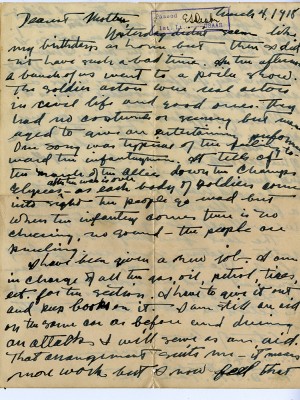 March 4, 1918
Dearest Mother,
Passed
Yesterday didn't seem like
my birthday as home but then I did
not have such a bad time. In the afternoon
a bunch of us went to a poilu show.
The soldier actors were real actors
in civil life and good ones. They
had no costumes or scenery but man-
aged to give an entertaining performance
One song was typical of the feeling to
ward the infantrymen. It tells of
after the war is over
the march of the allies down the Champs
Elysees - as each body of soldiers come
into sight the people go mad but
when the infantry comes there is no
cheering, no sound - the people are
kneeling
I have been given a new job. I am
in charge of all the gas, oil, petrol, tires,
ect. for the section. I have to give it out
and keep books on it - I am still an aid
on the same car as before and during
an attack I will serve as an aid.
That arrangement suits me - it means
more work but I now feel that